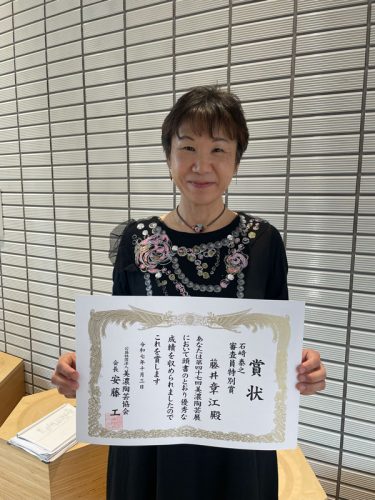 賞状
石﨑泰之
審査員特別賞
藤井章江殿
あなたは第四十七回美濃陶芸展
において頭書のとおり優秀な
成績を収められましたので
これを賞します
令和七年十月二日
公益社団法人美濃陶芸協会
会長 安藤工